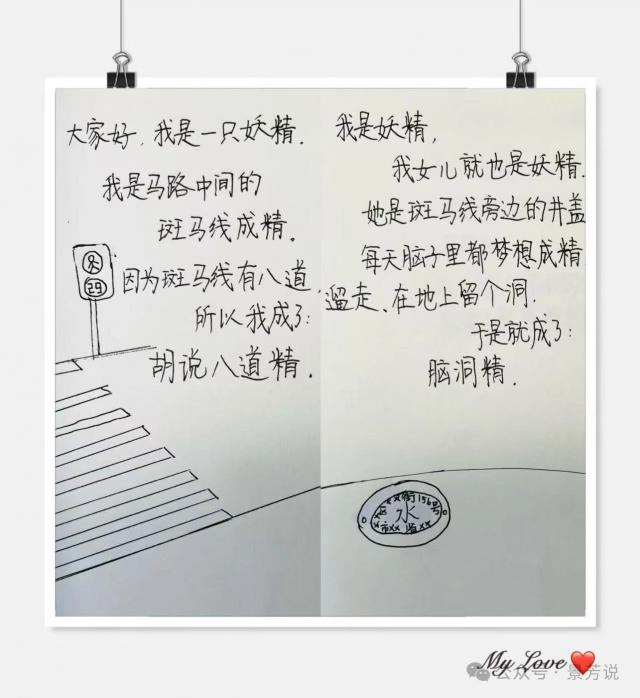 大家好，我是一只妖精．
我是马路中间的
斑马线成精．
因为斑马线有八道
所以我成了：
胡说八道精．
29
我是妖精，
我女儿就也是妖精．
她是斑马线旁边的井盖
每天脑子里都梦想成精
遛走、在地上留个洞．
于是就成了：
脑洞精．
区xx街156号
市xx省xx
水
My Love
公众号·景芳说